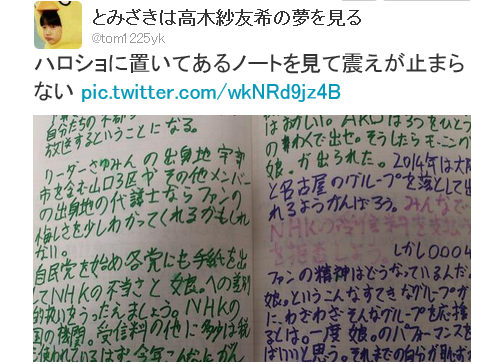 とみざきは高木紗友希の夢を見る
@tom1225yk
ハロショに置いてあるノートを見て震えが止まら
ない pic.twitter.com/wkNRd9jz4B
自分たちの
放送するということになる。
リーダーさゆみんの出身地宇部
市を含む山口3区やその他メンバー
の出身地の代議士ならファンの
悔しさを少しわかってくれるかもしれ
ない。
自民党を始め各党にも手紙を出
してNHKの不当さと娘。への差別
的扱いをうったえましょう。NHKの
国の機関。受信料の他に多少は税
使われているはず
はおかしい。AKBは3つをひとつ
わくで出せ。そうしたらモーニング
娘。が出られた。2014年は大阪
と名古屋のグループを落として出
れるようがんばろう。みんなで
NHKの受信料を支払
を拒否しよう。
しかし〇〇〇4
ファンの精神はどうなっているんだ。
娘。というこんなすてきなグループが
に、わざわざそんなグループを応援
るとは。一度 娘。のパフォーマンスを
ばいいと思う。それまでの自分が恥ず